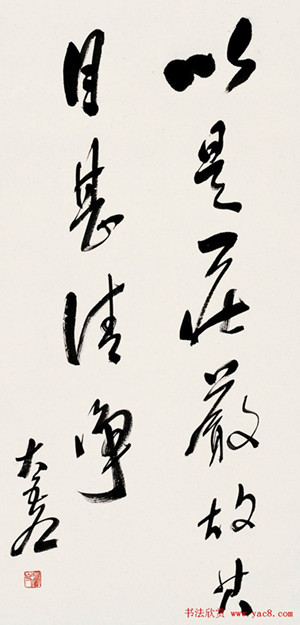 以是莊嚴故其
目甚清淨
书法欣赏
www.yac8.com